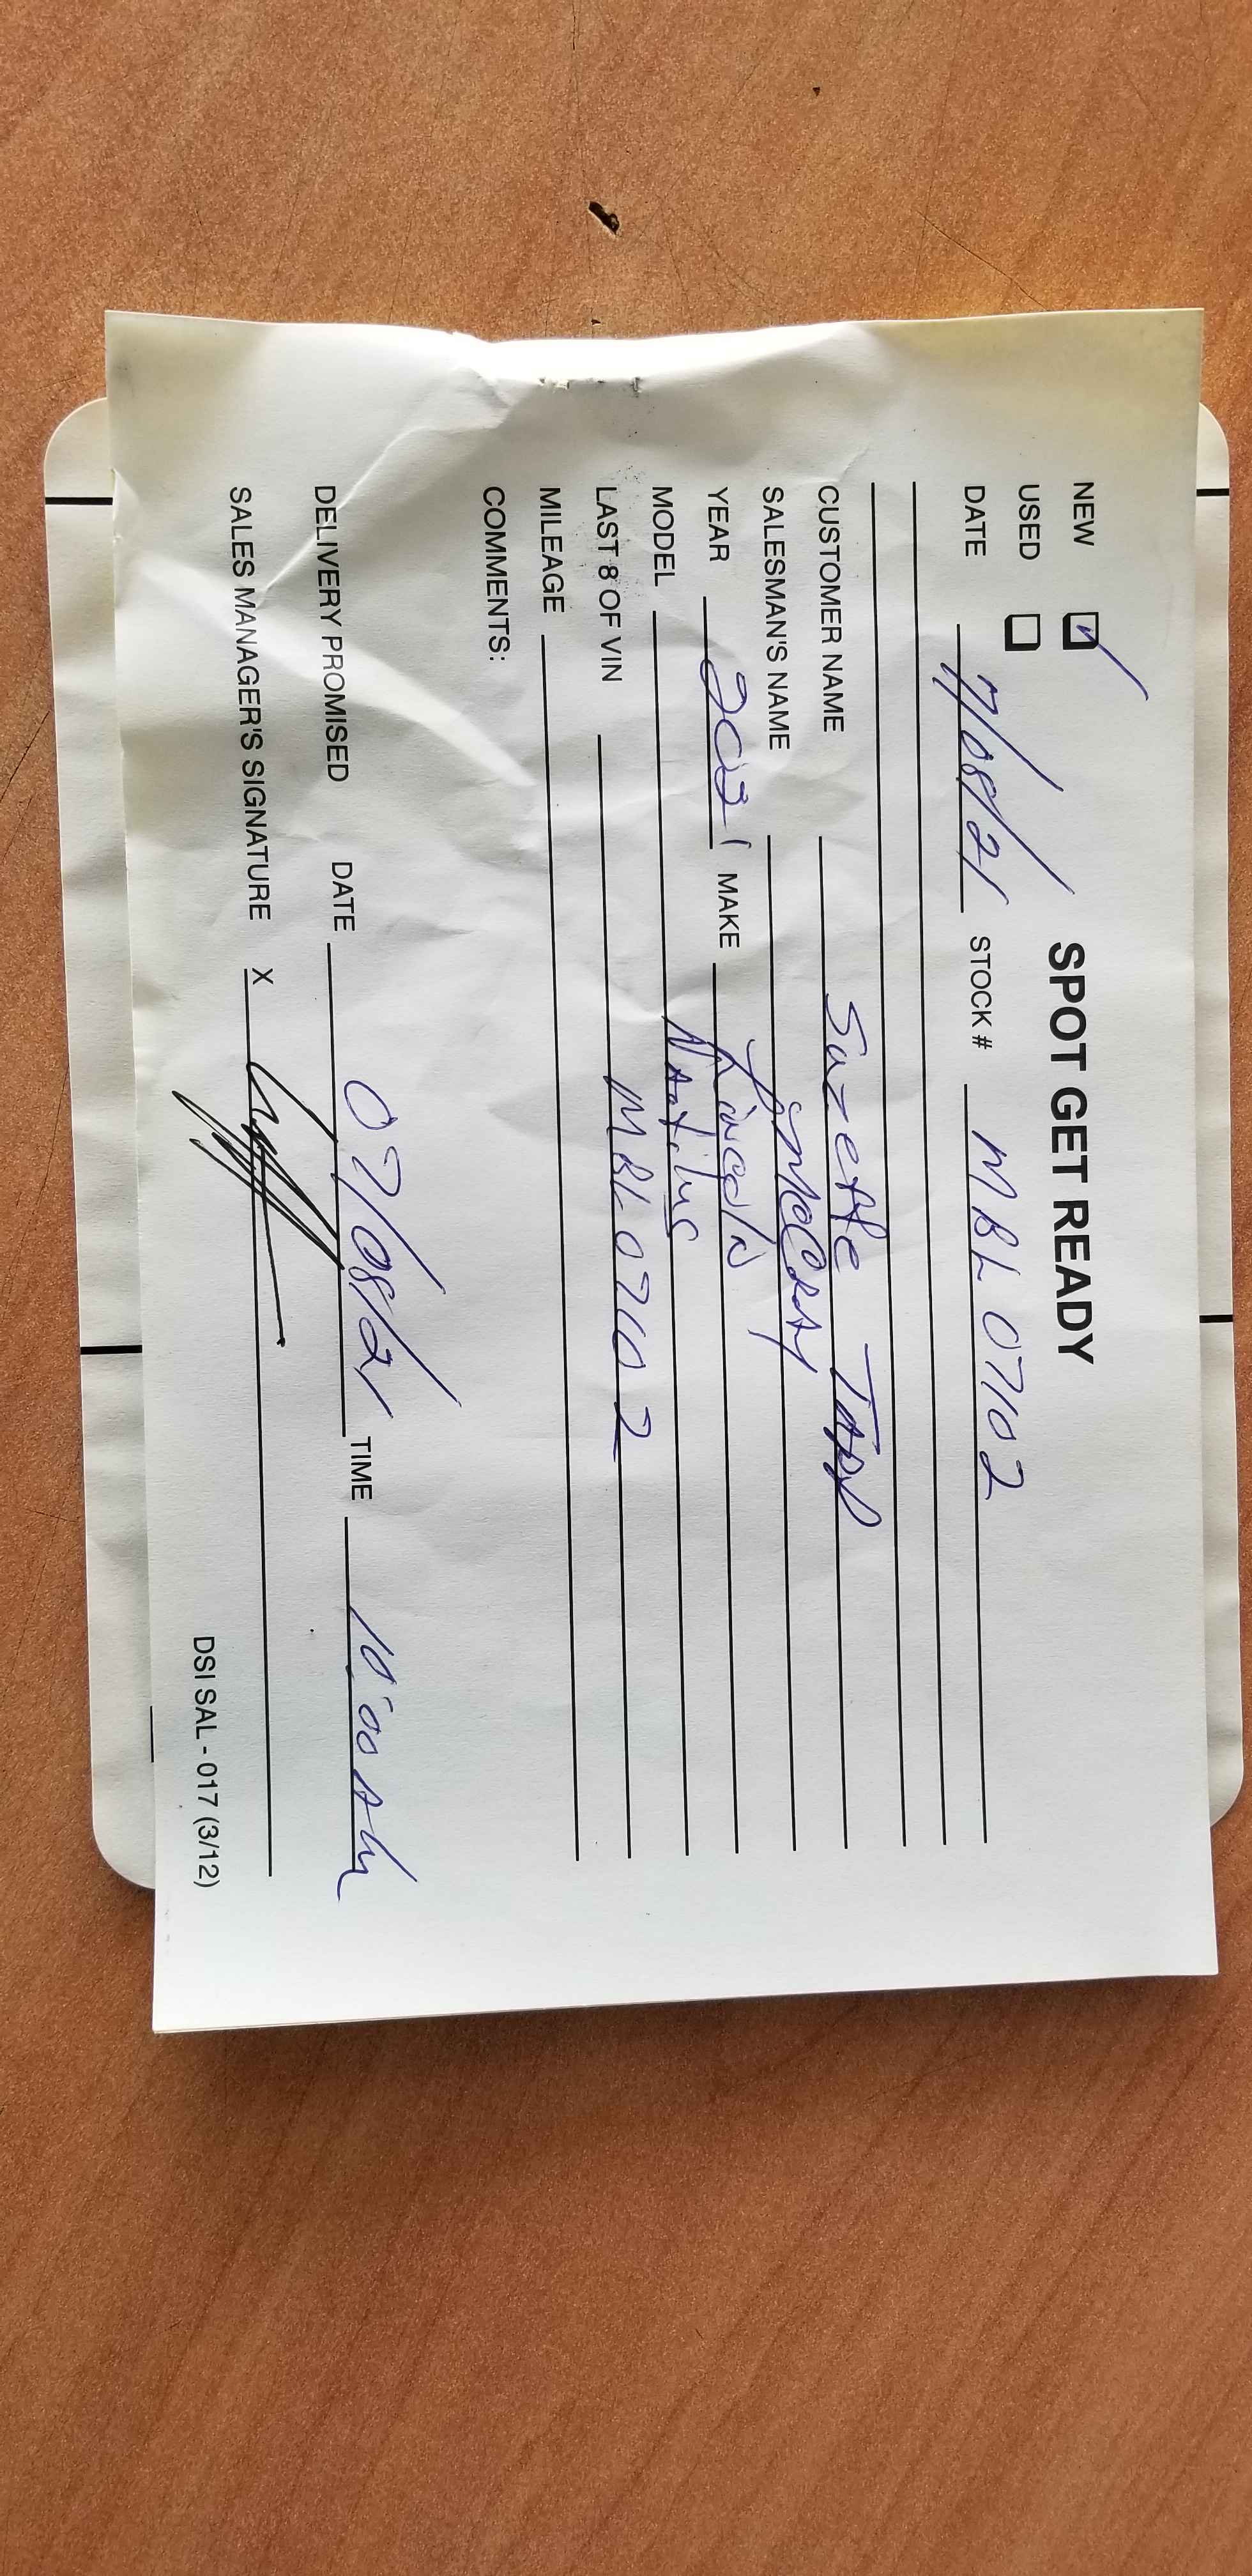 SPOT GET READY
NEW ☑
USED ☐
DATE 7/08/21 STOCK # MBL 07102
CUSTOMER NAME Suzette
SALESMAN'S NAME
YEAR 2021 MAKE Lincoln
MODEL Nautilus
LAST 8 OF VIN MBL 07102
MILEAGE
COMMENTS:
DELIVERY PROMISED DATE 07/08/21 TIME 10:00 AM
SALES MANAGER'S SIGNATURE X
DSI SAL - 017 (3/12)